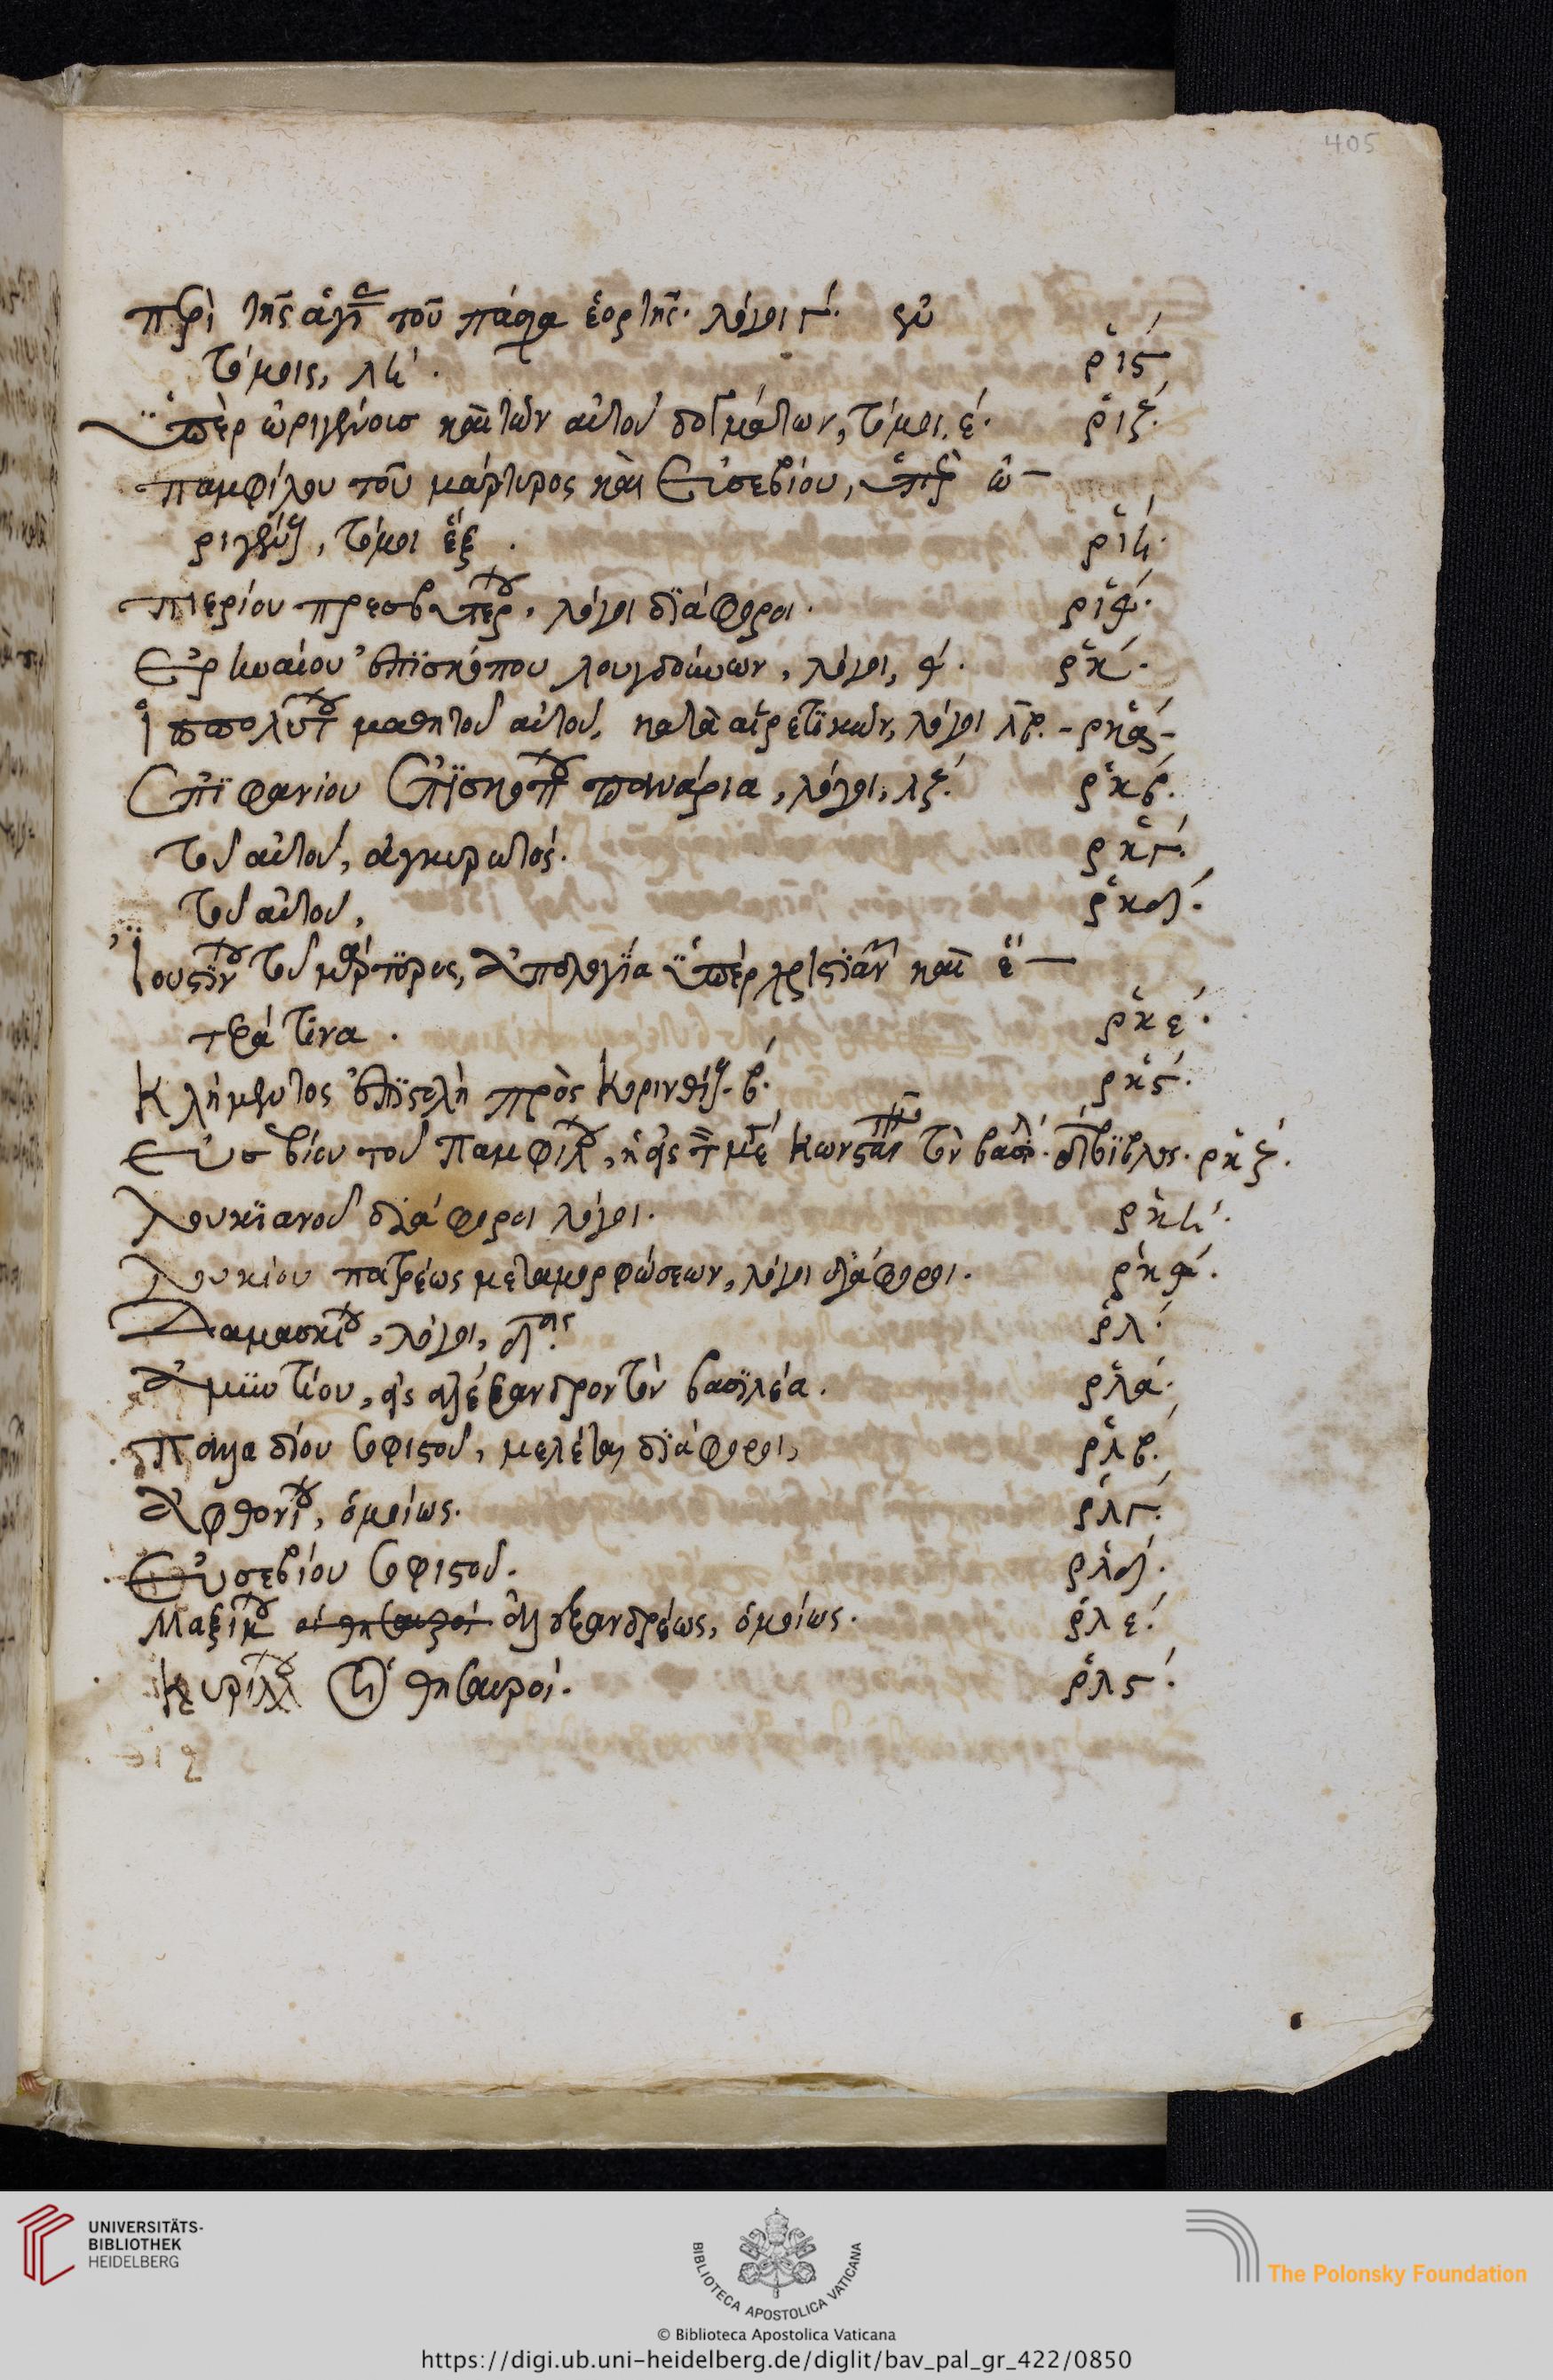 405
περὶ τῆς ἁγίας τοῦ πάσχα ἑορτῆς. λόγοι γ´. ἐν
τόμοις, λη´. ριϛ´
ὑπὲρ ὠριγένους καὶ τῶν αὐτοῦ δογμάτων, τόμοι, ε´. ριζ´.
παμφίλου τοῦ μάρτυρος καὶ Εὐσεβίου, ὑπὲρ ὠ-
ριγένους, τόμοι ἕξ. ριη´.
πιερίου πρεσβυτέρου, λόγοι διάφοροι. ριθ´.
Εἰρηναίου ἐπισκόπου λουγδούνων, λόγοι, θ´. ρκ´.
ἱππολύτου μαθητοῦ αὐτοῦ, κατὰ αἱρετικῶν, λόγοι - ρκα´ -
Ἐπιφανίου Ἐπισκόπου πανάρια, λόγοι, λζ´. ρκβ´.
τοῦ αὐτοῦ, ἀγκυρωτός. ρκγ´.
τοῦ αὐτοῦ, ρκδ´.
Ἰουστίνου τοῦ μάρτυρος, ἀπολογία ὑπὲρ χριστιανῶν καὶ ἕ-
τερά τινα. ρκε´.
Κλήμεντος ἐπιστολὴ πρὸς Κορινθίους. β´. ρκϛ´.
Εὐσεβίου τοῦ Παμφίλου, εἰς τὸν μέγα Κωνσταντῖνον τὸν βασιλέα. τετράβιβλος. ρκζ´.
Λουκιανοῦ διάφοροι λόγοι. ρκη´.
Λουκίου πατρέως μεταμορφώσεων, λόγοι διάφοροι. ρκθ´.
Δαμασκίου, λόγοι, ρλ´.
Ἀμυντίου, εἰς ἀλέξανδρον τὸν βασιλέα. ρλα´.
Παλλαδίου σοφιστοῦ, μελέται διάφοροι, ρλβ´.
Ἀφθονίου, ὁμοίως. ρλγ´.
Εὐσεβίου σοφιστοῦ. ρλδ´.
Μαξίμου οἱ θησαυροί ἀλεξανδρέως, ὁμοίως. ρλε´.
Κυρίλλου οἱ θησαυροί. ρλϛ´.
UNIVERSITÄTS-
BIBLIOTHEK
HEIDELBERG
BIBLIOTECA APOSTOLICA VATICANA
The Polonsky Foundation
© Biblioteca Apostolica Vaticana
https://digi.ub.uni-heidelberg.de/diglit/bav_pal_gr_422/0850